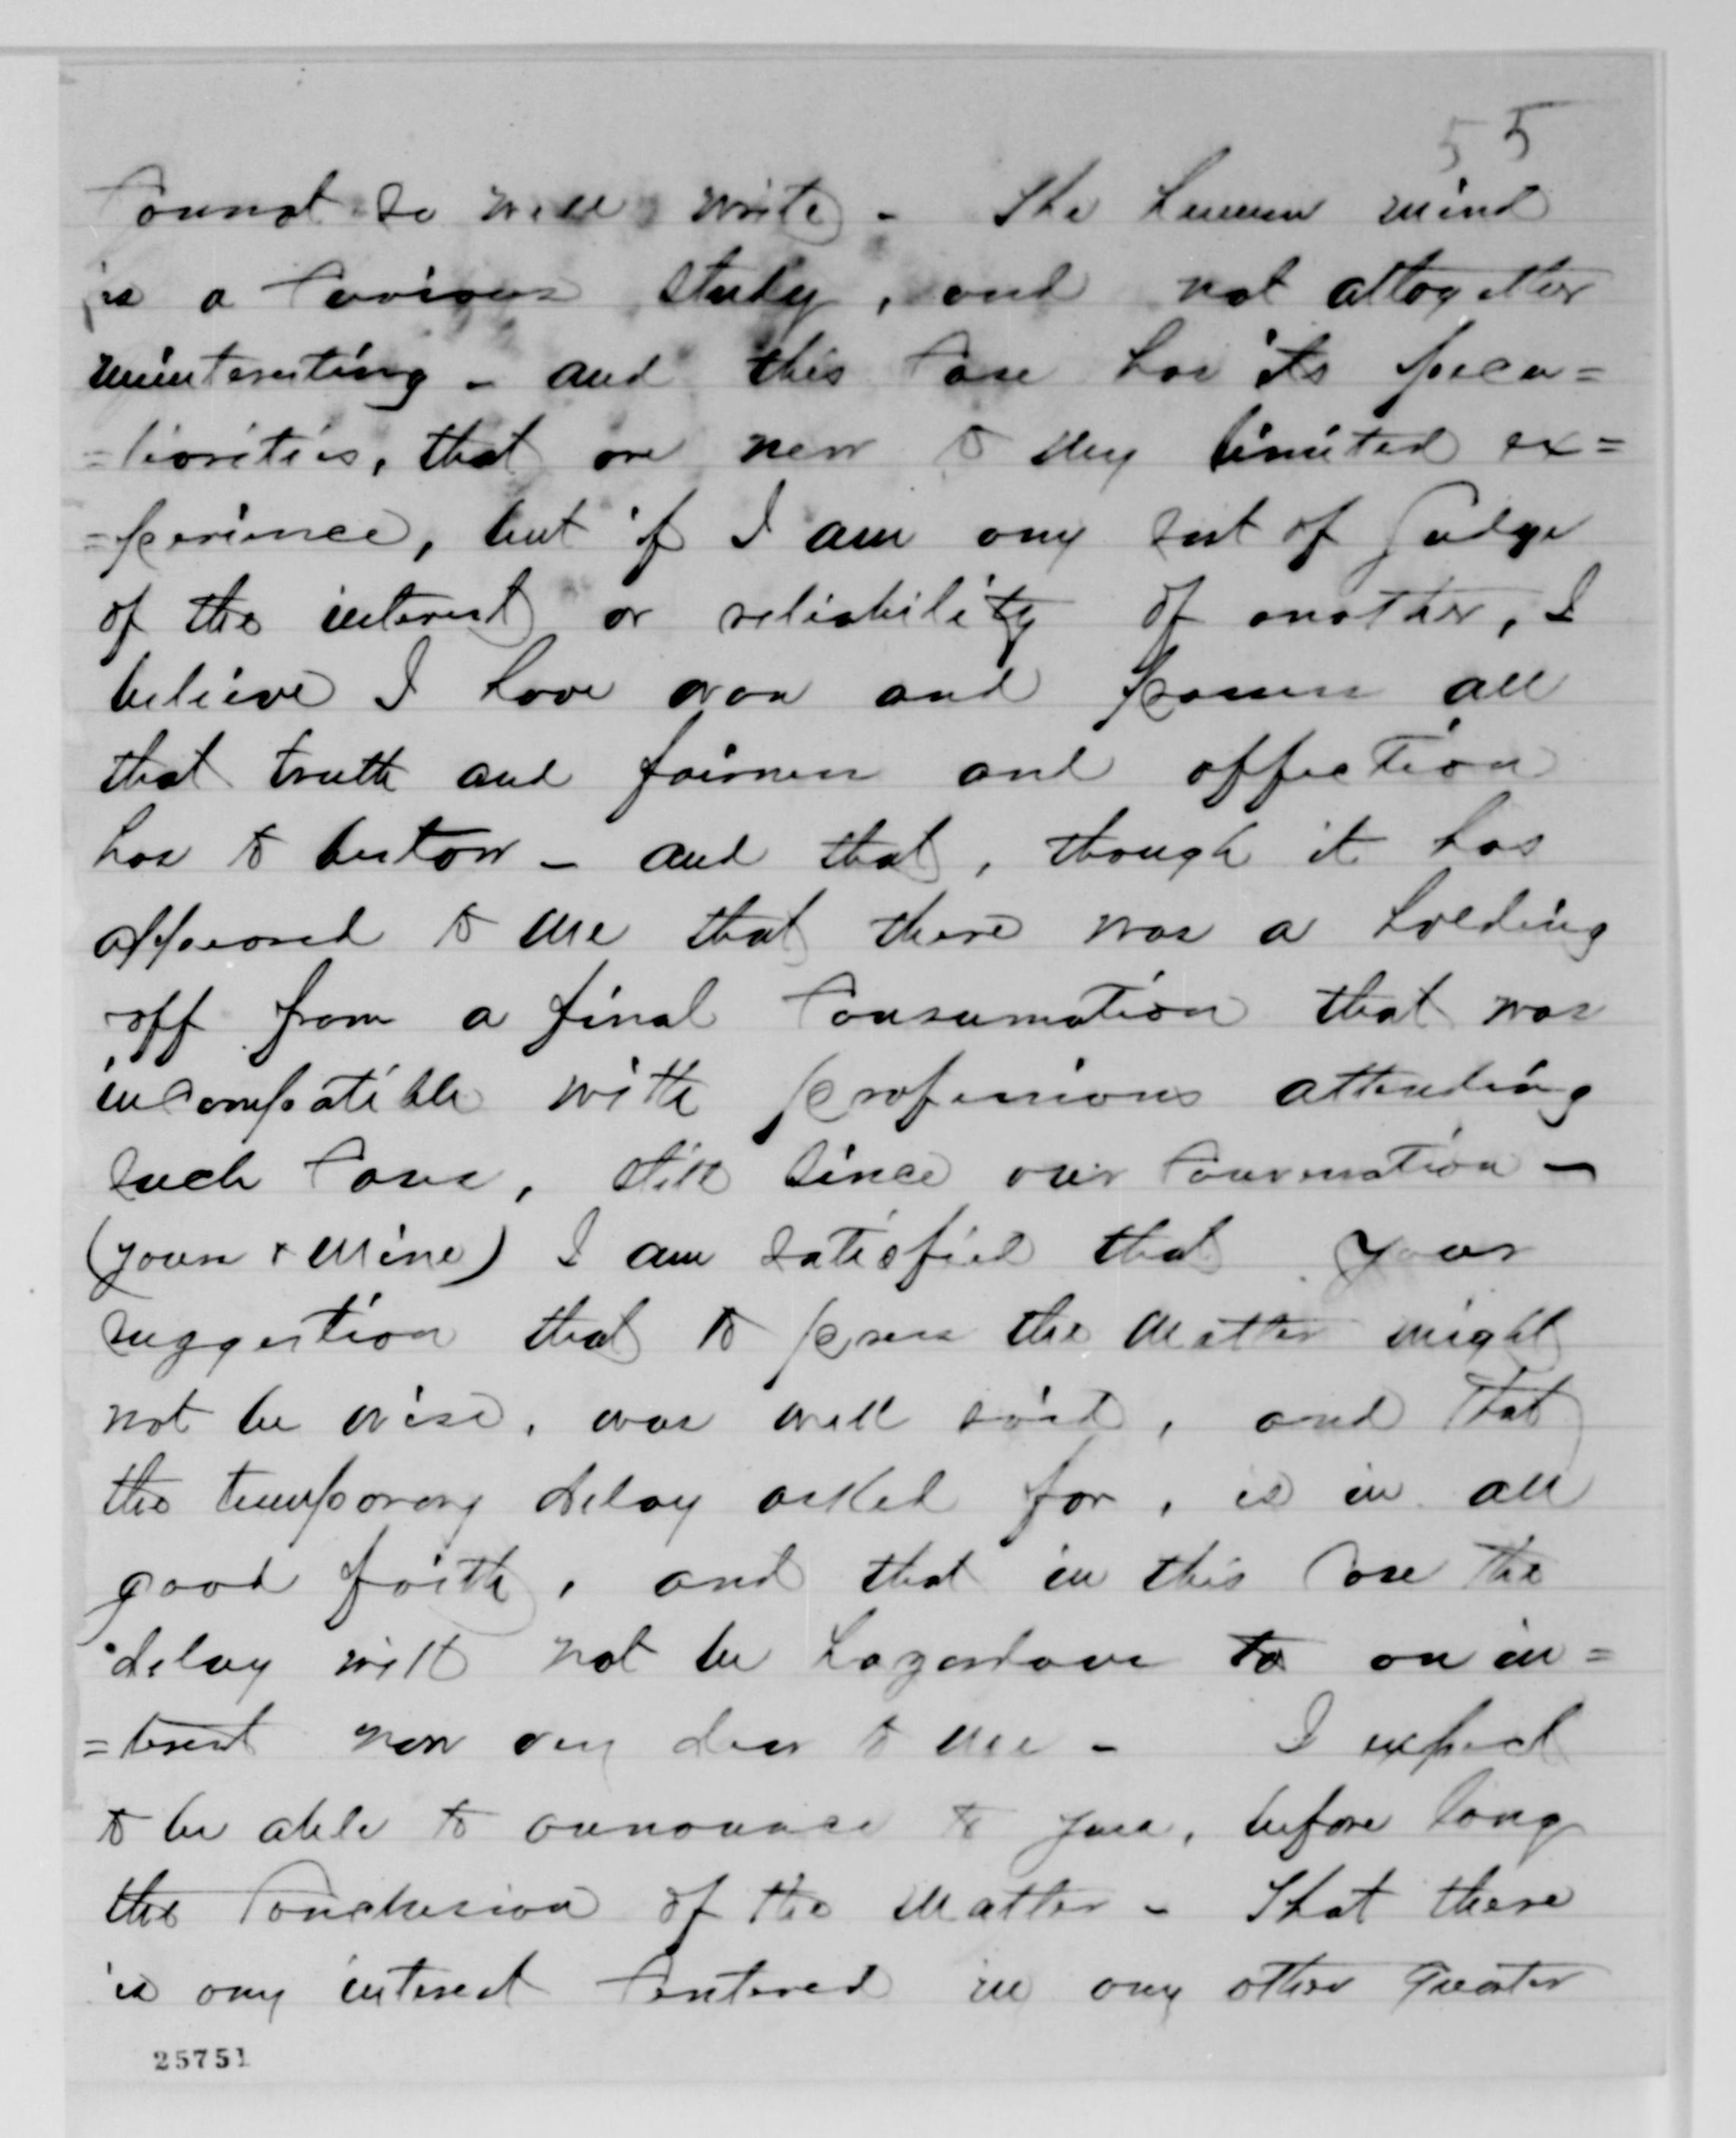 55
Cannot so well write - The human mind
is a Curious study, and not altogether
uninteresting - and this Case has its pecu=
=liarities, that are new to my limited ex=
=perience, but if I am any sort of Judge
of the interest or reliability of another, I
believe I have won and possess all
that truth and fairness and affection
has to bestow - and that, though it has
appeared to me that there was a holding
off from a final Consumation that was
incompatible with professions attending
such Cases, still since our Conversation -
(yours & mine) I am satisfied that your
suggestion that to press the matter might
not be wise, was well said, and that
the temporary delay asked for, is in all
good faith, and that in this Case the
delay will not be hazardous to an in=
=terest now very dear to me - I expect
to be able to announce to you, before long
the Conclusion of the matter - That there
is any interest Centered in any other quarter
25751